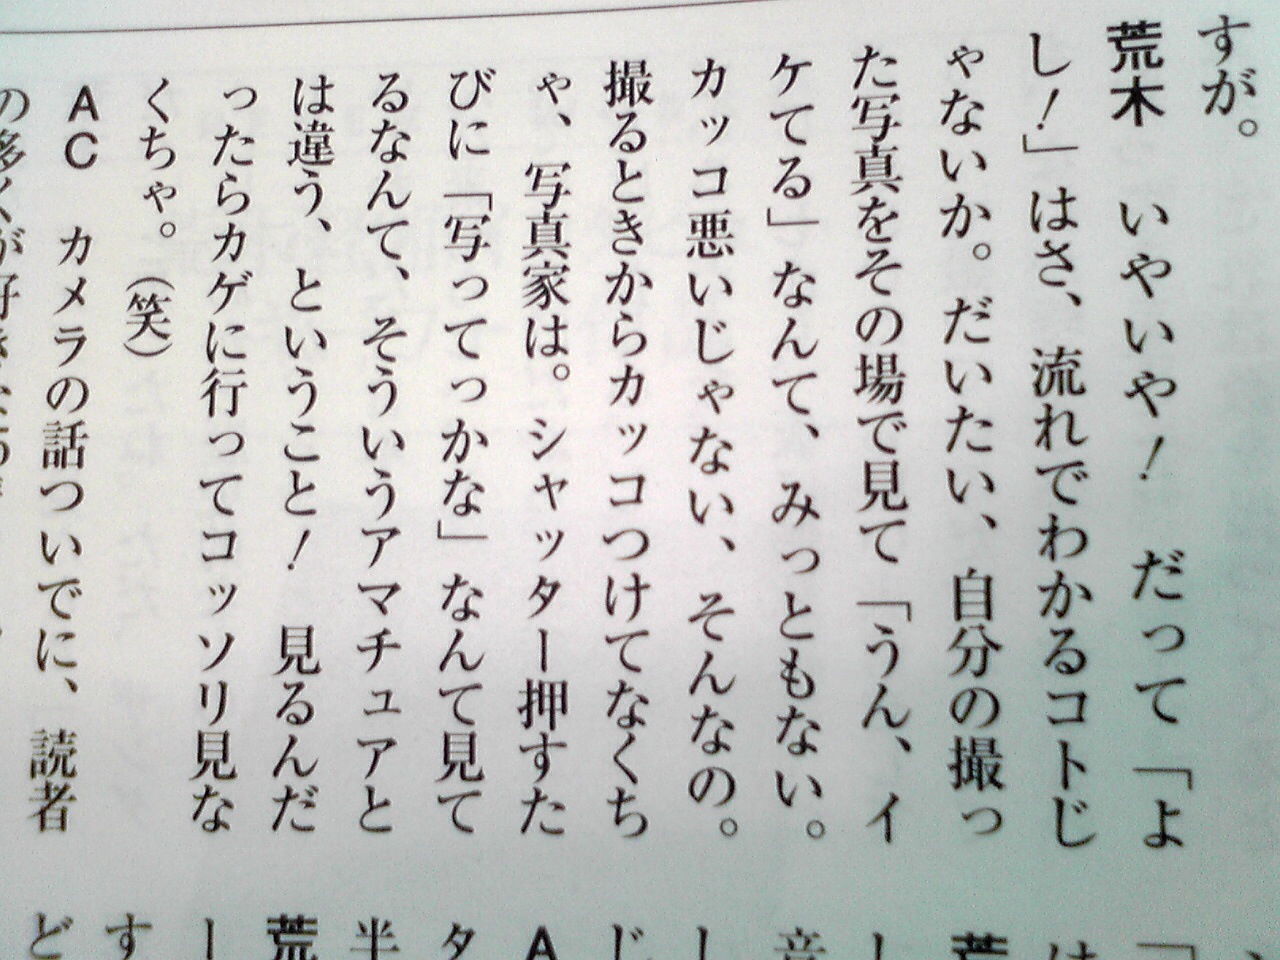 すが。
荒木　いやいや！　だって「よ
し！」はさ、流れでわかるコトじ
ゃないか。だいたい、自分の撮っ
た写真をその場で見て「うん、イ
ケてる」なんて、みっともない。
カッコ悪いじゃない、そんなの。
撮るときからカッコつけてなくち
ゃ、写真家は。シャッター押すた
びに「写ってっかな」なんて見て
るなんて、そういうアマチュアと
は違う、ということ！　見るんだ
ったらカゲに行ってコッソリ見な
くちゃ。（笑）
AC　カメラの話ついでに、読者
の多くが好き
「
は
荒
し
音
し
じ
A
タ
半
荒
ー
す
ど